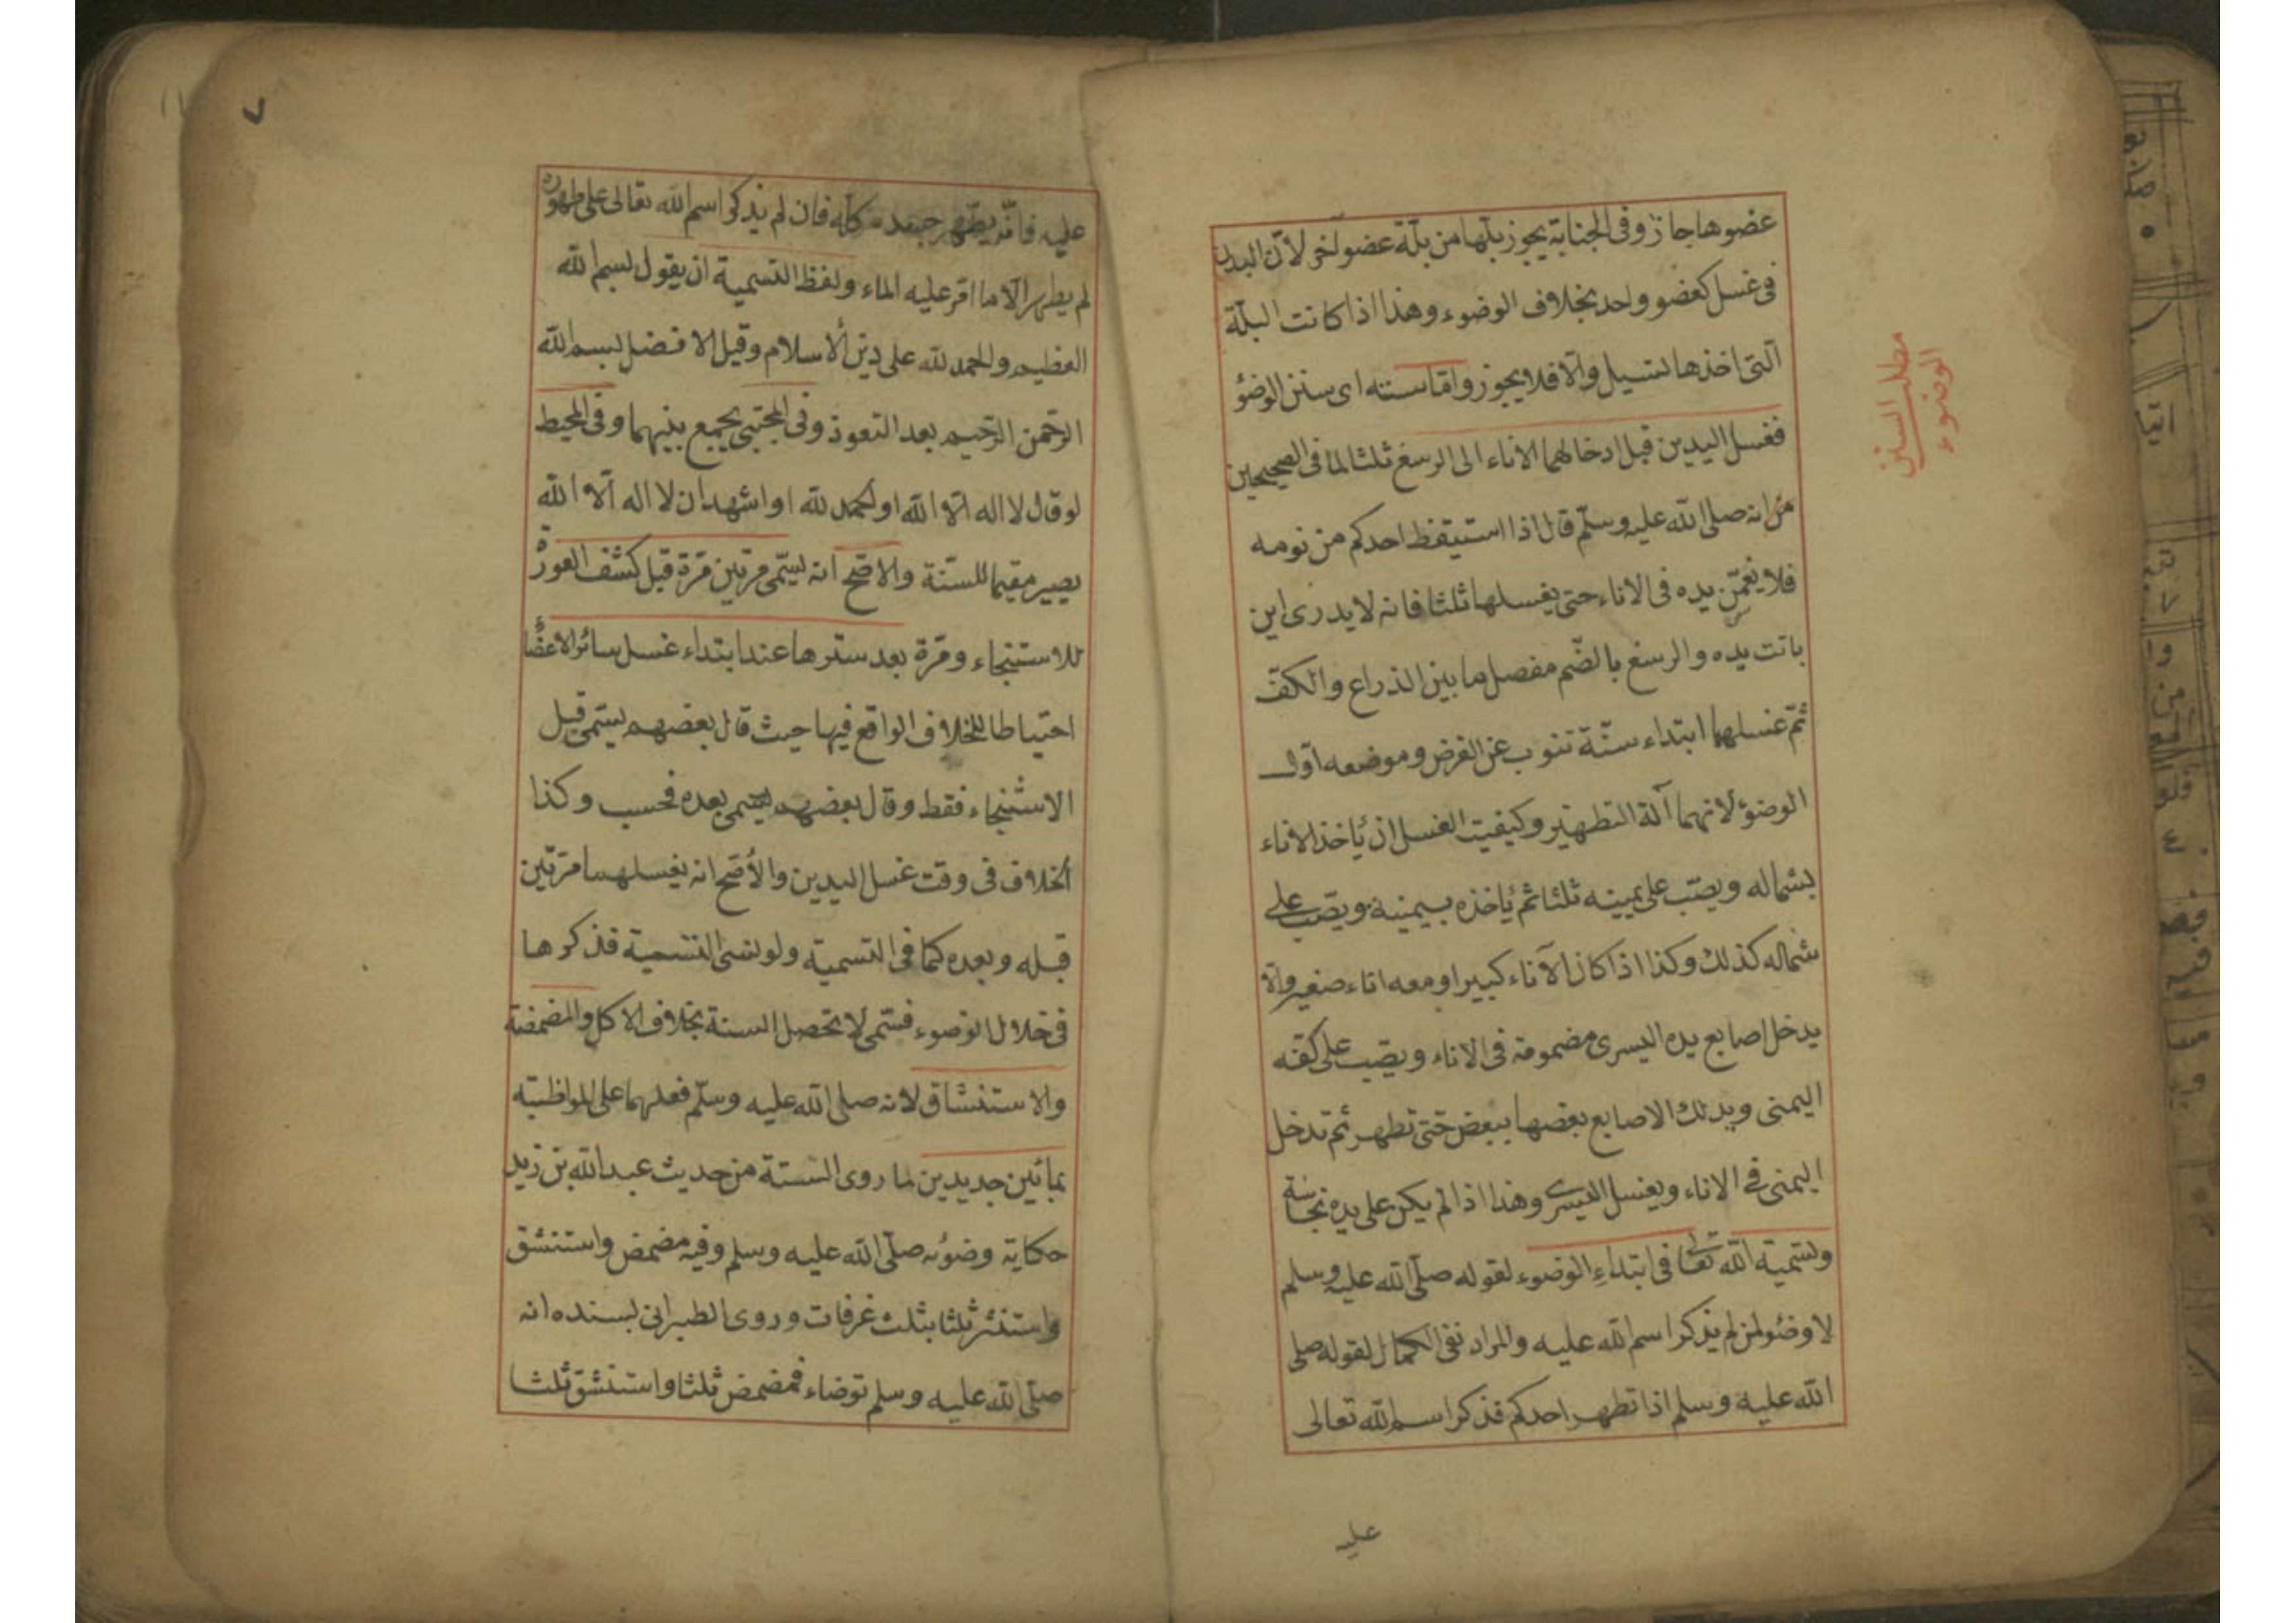 عضوها جاز وفى الجنابة يجوز بلها من بلة عضو اخر لان البدن
فى غسل كعضو واحد بخلاف الوضوء وهذا اذا كانت البلة
التى اخذها تسيل والا فلا يجوز واما سننه اى سنن الوضؤ
فغسل اليدين قبل ادخالهما الاناء الى الرسغ ثلثا لما فى الصحيحين
من انه صلى الله عليه وسلم قال اذا استيقظ احدكم من نومه
فلا يغمسن يده فى الاناء حتى يغسلها ثلثا فانه لا يدرى اين
باتت يده والرسغ بالضم مفصل ما بين الذراع والكف
ثم غسلهما ابتداء سنة تنوب عن الفرض وموضعه اول
الوضؤ لانهما آلة التطهير وكيفيت الغسل ان يأخذ الاناء
بشماله ويصب على يمينه ثلثا ثم يأخذه بيمينه ويصب على
شماله كذلك وكذا اذا كان الاناء كبيرا ومعه اناء صغير والا
يدخل اصابع يده اليسرى مضمومة فى الاناء ويصب على كفه
اليمنى ويدلك الاصابع بعضها ببعض حتى تطهر ثم تدخل
اليمنى فى الاناء ويغسل اليسرى وهذا اذا لم يكن على يده نجاسة
وتسمية الله تعالى فى ابتداء الوضوء لقوله صلى الله عليه وسلم
لا وضوء لمن لم يذكر اسم الله عليه والمراد نفى الكمال لقوله صلى
الله عليه وسلم اذا تطهر احدكم فذكر اسم الله تعالى
عليه
مطلب السنن
الوضوء
٧
عليه فانه يطهر جسده كله فان لم يذكر اسم الله تعالى على طهوره
لم يطهر الا ما امر عليه الماء ولفظ التسمية ان يقول بسم الله
العظيم والحمد لله على دين الاسلام وقيل الافضل بسم الله
الرحمن الرحيم بعد التعوذ وفى المجتبى يجمع بينهما وفى المحيط
لو قال لا اله الا الله او الحمد لله او اشهد ان لا اله الا الله
يصير مقيما للسنة والاصح انه يسمى مرتين مرة قبل كشف العورة
للاستنجاء ومرة بعد سترها عند ابتداء غسل سائر الاعضاء
احتياطا للخلاف الواقع فيها حيث قال بعضهم يسمى قبل
الاستنجاء فقط وقال بعضهم يسمى بعده فحسب وكذا
الخلاف فى وقت غسل اليدين والأصح انه يغسلهما مرتين
قبله وبعده كما فى التسمية ولو نسى التسمية فذكرها
فى خلال الوضوء فسمى لا تحصل السنة بخلاف الاكل والمضمضة
والاستنشاق لانه صلى الله عليه وسلم فعلهما على المواظبة
بمائين جديدين لما روى الستة من حديث عبد الله بن زيد
حكاية وضوئه صلى الله عليه وسلم وفيه مضمض واستنشق
واستنثر ثلثا بثلث غرفات وروى الطبرانى بسنده انه
صلى الله عليه وسلم توضاء فمضمض ثلثا واستنشق ثلثا